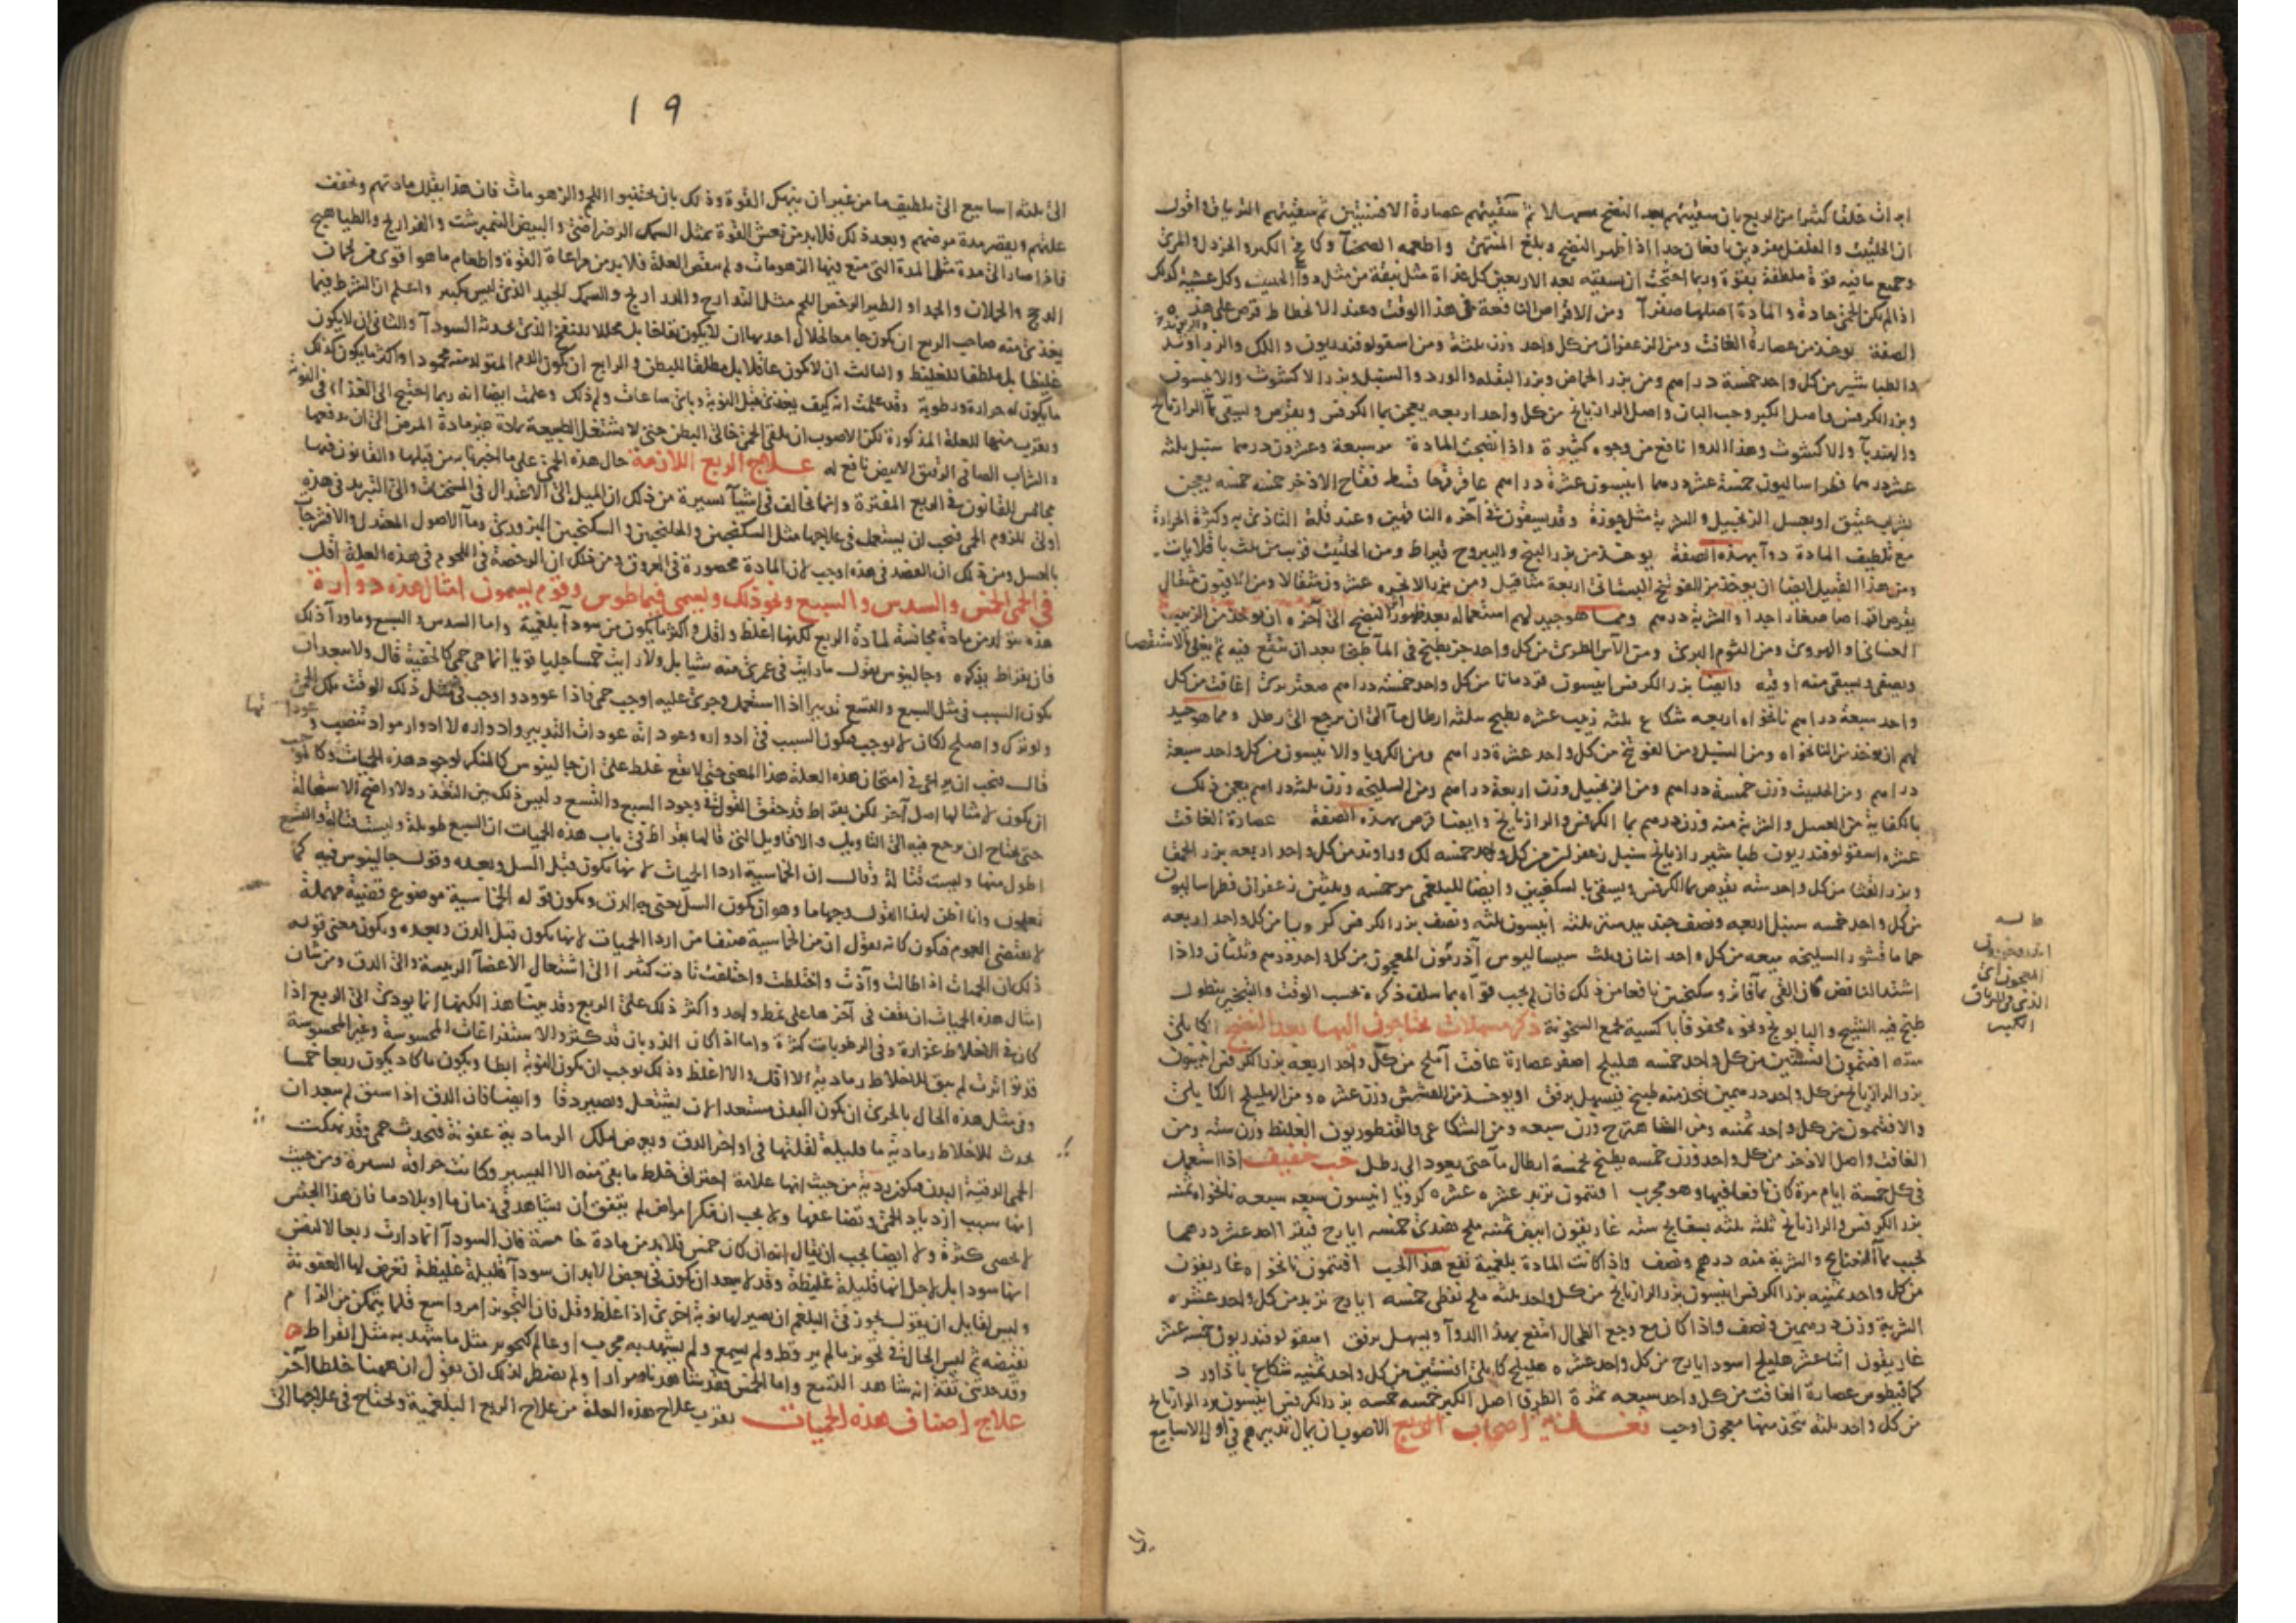 ابرات خلقا كثيرا من الربع بان سقيتهم بعد النضج مسهلا ثم سقيتهم عصارة الافسنتين ثم سقيتهم الترياق اقول
ان الحلتيت والفلفل مفردين نافعان جدا اذا ظهر النضج وبلغ المنتهى واطعمه الصحناء وكامخ الكبر والخردل والمرى
وجميع ما فيه قوة ملطفة بقوة وربما احتجت ان تسقيه بعد الاربعين كل غداة مثل نبقة من مثل دواء الحلتيت وكل عشية كذلك
اذا لم تكن الحمى حادة والمادة اصلها صفراء ومن الاقراص النافعة في هذا الوقت وعند الانحطاط قرص على هذه
الصفة يوخذ من عصارة الغافت ومن الزعفران من كل واحد وزن ثلثة ومن اسقولوقندريون واللك والزراوند
والطباشير من كل واحد خمسة دراهم ومن بزر الحماض وبزر البقله والورد والسنبل وبزر الاكشوث والانيسون
وبزر الكرفس واصل الكبر وحب البان واصل الرازيانج من كل واحد اربعه يعجن بماء الكرفس ويقرص ويسقى بماء الرازيانج
والهندباء والاكشوث وهذا الدوا نافع من وجوه كثيرة واذا نضجت المادة مر سبعة وعشرون درهما سنبل ثلثه
عشر درهما فطراساليون خمسة عشر درهما انيسون عشرة دراهم عاقرقرحا قسط فقاح الاذخر خمسه خمسه يعجن
بشراب عتيق او بعسل الزنجبيل والشربة مثل جوزة وقد يسقون في آخره النافهين وعند قلة التاذى به وكثرة الحرارة
مع تلطيف المادة دوآ بهذه الصفة يوخذ من بزر البنج واليبروح قيراط ومن الحلتيت قريب من ثلث باقلايات
ومن هذا القبيل ايضا ان يوخذ من الفوتنج البستانى اربعة مثاقيل ومن بزر الانجره عشرون مثقالا ومن الافيون مثقال
يقرص اقراصا صغارا جدا والشربة درهم ومما هو جيد لهم استعماله بعد ظهور النضج الى آخره ان يوخذ من الزبيب
وبصفى ويسقى منه اوقيه وايضا بزر الكرفس انيسون قردمانا من كل واحد خمسة دراهم صعتر برى غافت من كل
واحد سبعة دراهم نانخواه اربعه شكاع ثلثه زبيب عشره يطبخ بثلثة ارطال ماء الى ان يرجع الى رطل ومما هو جيد
لهم ان يوخذ من النانخواه ومن السنبل ومن الفوتنج من كل واحد عشرة دراهم ومن الكرويا والانيسون من كل واحد سبعة
دراهم ومن الحلتيت وزن خمسة دراهم ومن الزنجبيل وزن اربعة دراهم ومن السليخه وزن ثلثه دراهم يعجن ذلك
بالكفاية من العسل والشربة منه وزن درهم بماء الكرفس والرازيانج وايضا قرص بهذه الصفة عصارة الغافت
عشره اسقولوقندريون طباشير رازيانج سنبل زعفران من كل واحد خمسه لك وراوند من كل واحد اربعه بزر الحمقا
وبزر القثا من كل واحد سته يقرص بماء الكرفس ويسقى بالسكنجبين وايضا للبلغمى مر خمسه وثلثين زعفران فطراساليون
من كل واحد خمسه سنبل اربعه ونصف جندبيدستر ثلثه انيسون ثلثه ونصف بزر الكرفس كرويا من كل واحد اربعه
حماما قشور السليخه سبعه من كل واحد اثنان وثلث سيساليوس المعجون من كل واحد درهم وثلثان واذا
اشتد النافض كان القى بماء فاتر وسكنجبين نافعا من ذلك فان لم يجب قواه بما سلف ذكره بحسب الوقت والتبخير بنطول
طبخ فيه الشيح والبابونج ونحوه محفوفا باكسية لجمع السخونة ذكر مسهلات يحتاجون اليها بعد النضج الكابلى
سته افتيمون افسنتين من كل واحد خمسه هليلج اصفر عصارة غافت املج من كل واحد اربعه بزر الكرفس انيسون
بزر الرازيانج من كل واحد درهمين يتخذ منه طبيخ فيسهل برفق او يوخذ من المشمش وزن عشره ومن الهليلج الكابلى
والافتيمون من كل واحد ثمنيه ومن الشاهترج وزن سبعه ومن الشكاعى والقنطوريون الغليظ وزن سته ومن
الغافت واصل الاذخر من كل واحد وزن خمسه يطبخ بخمسة ارطال ماء حتى يعود الى رطل حب خفيف اذا استعمل
فى كل خمسة ايام مرة كان نافعا فيها وهو مجرب افتيمون تربد عشره عشره كرويا انيسون سبعه سبعه نانخواه ثمنيه
بزر الكرفس والرازيانج ثلثه ثلثه بسفايج سته غاريقون ابيض ثمنيه ملح هندى خمسه ايارج فيقرا احد عشر درهما
يحبب بماء النعناع والشربة منه درهم ونصف واذا كانت المادة بلغمية نفع هذا الحب افتيمون نانخواه غاريقون
من كل واحد ثمنيه بزر الكرفس انيسون بزر الرازيانج من كل واحد ثلثه ملح نفطى خمسه ايارج تربد من كل واحد عشره
الشربة وزن درهمين ونصف واذا كان مع وجع الطحال انتفع بهذا الدوآ ويسهل برفق اسقولوقندريون خمسه عشر
غاريقون اثنا عشر هليلج اسود ايارج من كل واحد عشره هليلج كابلى افسنتين من كل واحد ثمنيه شكاع باذاورد
كمافيطوس عصارة الغافت من كل واحد سبعه ثمرة الطرفا اصل الكبر خمسه خمسه بزر الكرفس انيسون بزر الرازيانج
من كل واحد ثلثه يتخذ منها معجون او حب تغذية اصحاب الربع الاصوب ان يمال تدبيرهم فى اول الاسابيع
المعجون
١٩
الى ثلثه اسابيع الى تلطيف ما من غير ان ينهك القوة وذلك بان يجتنبوا اللحم والزهومات فان هذا يقلل مادتهم ويخفف
عليهم ويقصر مدة مرضهم وبعد ذلك فلابد من نعش القوة بمثل السمك الرضراضى والبيض النيمبرشت والفراريج والطياهيج
فاذا صار الى مدة مثل المدة التى منع فيها الزهومات ولم تنقص العلة فلابد من مراعاة القوة واطعام ما هو اقوى من لحمان
الدجج والحملان والجدا والطير الرخص اللحم مثل التدارج والدراريج والسمك الجيد الذى ليس بكبير واعلم ان الشرط فيما
يغذى منه صاحب الربع ان يكون جامعا لخلال احديها ان لا يكون نفاخا بل محللا للنفخ الذى يحدثه السوداء والثانى ان لا يكون
غليظا بل ملطفا للغليظ والثالث ان لا يكون عاقلا بل مطلقا للبطن والرابع ان يكون الدم المتولد منه محمودا واكثر ما يكون كذلك
ما يكون له حرارة ورطوبة وقد علمت انه كيف يغذى قبل النوبة وباى ساعات ولم ذلك وعلمت ايضا انه ربما احتيج الى الغذاء فى النوبة
وبقرب منها للعلة المذكورة لكن الاصوب ان يلقى الحمى خالى البطن حتى لا تشتغل الطبيعة بمادة غير مادة المرض الى ان يدفعها
والشراب الصافى الرقيق الابيض نافع له علاج الربع اللازمة حال هذه الحمى على ما اخبرنا به من قبلها والقانون فيها
مجانس للقانون فى الربع المفترة وانما تخالف فى اشيآ يسيرة من ذلك ان الميل الى الاعتدال فى المسخنات والى التبريد فى هذه
اولى للزوم الحمى فيجب ان يستعمل فى علاجها مثل السكنجبين والجلنجبين السكنجبين البزورى وماء الاصول المعتدل والافشرجات
بالعسل ومن ذلك ان الفصد فى هذه اوجب لان المادة محصورة فى العروق ومن ذلك ان الرخصة فى اللحوم فى هذه العلة اقل
فى الحمى الخمس والسدس والسبع ونحو ذلك ويسمى فيماطوس وقوم يسمون امثال هذه دوارة
هذه تتولد من مادة مجانسة لمادة الربع لكنها اغلظ واقل واكثر ما يكون من سوداء بلغمية واما السدس والسبع وما وراء ذلك
فان بقراط يذكره وجالينوس يقول ما رايت فى عمرى منه شيا بل ولا رايت خمسا جليا قويا انما هى حمى كالخفية قال ولا يبعد ان
يكون السبب فى مثل السبع والتسع تدبيرا اذا استعمل وجرى عليه اوجب حمى فاذا عوود اوجب فى مثل ذلك الوقت تلك الحمى
ولو ترك واصلح لكان لا يوجب فيكون السبب فى ادواره وعوداته عودات التدبير وادواره لا ادوار مواد تنصب
قال فيجب ان يراعى فى امتحان هذه العلة هذا المعنى حتى لا يقع غلط على ان جالينوس كالمنكر لوجود هذه الحميات
ان يكون لامثالها اصل آخر لكن بقراط قد حقق القول فى وجود السبع والتسع وليس ذلك بين التعذر ولا واضح الاستحالة
حتى يحتاج ان يرجع فيه الى التاويل والاقاويل التى قالها بقراط فى باب هذه الحميات ان السبع طويلة وليست قتالة والتسع
اطول منها وليست قتالة وقال ان الخماسية اردا الحميات لانها تكون قبل السل وبعده وقول جالينوس فيه كما
تعلمون وانا اظن لهذا القول وجها ما وهو ان يكون السل يعنى به الدق ويكون قوله الخماسية موضوع قضية مهملة
لا يقتضى العموم فيكون كانه يقول ان من الخماسية صنفا من اردا الحميات لانها يكون قبل الدق وبعده ويكون معنى قوله
ذلك ان الحميات اذا طالت وآذت واختلطت واختلفت تادت كثيرا الى اشتعال الاعضآ الرييسة والى الدق ومن شان
امثال هذه الحميات ان تقف فى آخرها على نمط واحد واكثر ذلك على الربع وقد بينا هذا لكنها انما يودى الى الربع اذا
كان فى الاخلاط غزارة وفى الرطوبات كثرة واما اذا كان الذوبان قد كثر والاستفراغات المحسوسة وغير المحسوسة
قد تواترت لم يبق للاخلاط رمادية الا اقل والا اغلظ وذلك يوجب ان يكون النوبة ابطا ويكون ما كاد يكون ربعا خمسا
وفى مثل هذه الحال بالحرى ان يكون البدن مستعدا لان يشتعل ويصير دقا وايضا فان الدق اذا سبق لم يبعد ان
يحدث للاخلاط رمادية ما قليلة لقلتها فى اواخر الدق ويعرض لتلك الرمادية عفونة فتحدث حمى وقد نهكت
الحمى الدقية البدن فيكون ردية من حيث انها علامة احتراق خلط ما بقى منه الا اليسير وكانت حرافة يسيرة ومن حيث
انها سبب ازدياد الحمى وتضاعفها ولا يجب ان ينكر امراض لم يتفق ان يشاهد فى زمان ما او بلاد ما فان هذا الجنس
لا يحصى كثرة ولا ايضا يجب ان يقال انه ان كان خمس فلابد من مادة خامسة فان السوداء انما دارت ربعا لا لنفس
انها سودا بل لاجل انها قليلة غليظة وقد لا يبعد ان يكون فى بعض الابدان سوداء قليلة غليظة تعرض لها العفونة
وليس لقايل ان يقول يجوز فى البلغم ان يصير لها نوبة اخرى اذا غلظ وقل فان التجويز امر واسع قلما يتمكن من الزام
نقيضه ثم ليس الحال فى تجويز ما لم ير قط ولم يسمع ولم يشهد به مجرب او عالم كتجويز مثل ما شهد به مثل ابقراط
وقد حدثنى ثقة انه شاهد التسع واما الخمس فقد شاهدناه مرارا ولم نضطر لذلك ان نقول ان ههنا خلطا آخر
علاج اصناف هذه الحميات يقرب علاج هذه العلة من علاج الربع البلغمية ويحتاج فى علاجها الى